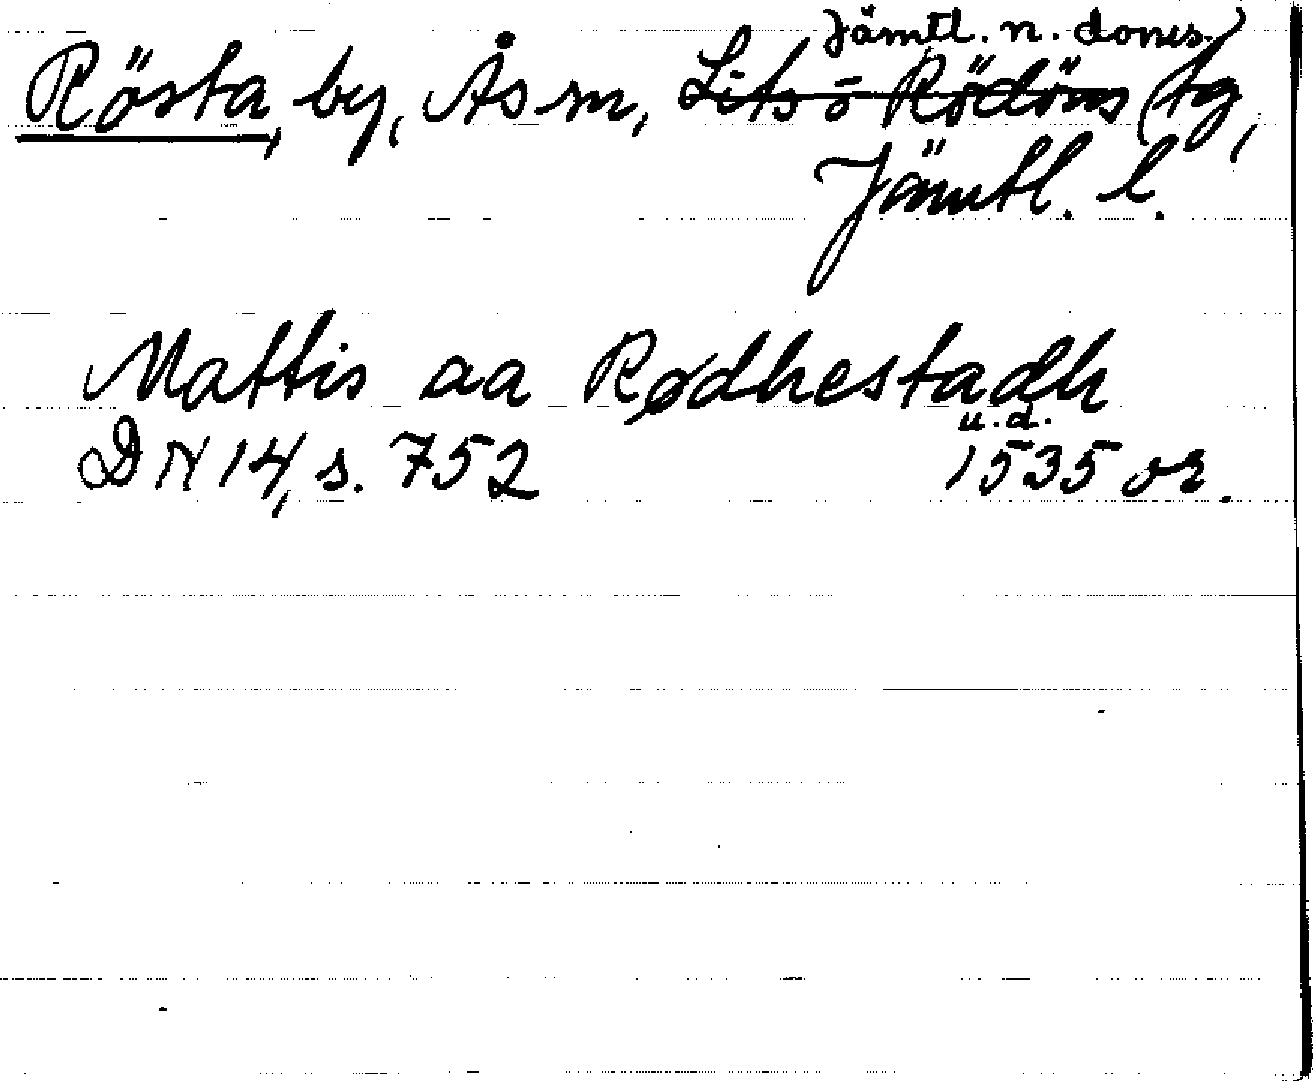 Jämtl. n. doms.
Rösta, by, Ås sn, Lits o Rödöns tg,
Jämtl. l.
Mattis aa Rødhestadh
u.d.
DN 14, s. 752 1535 or.